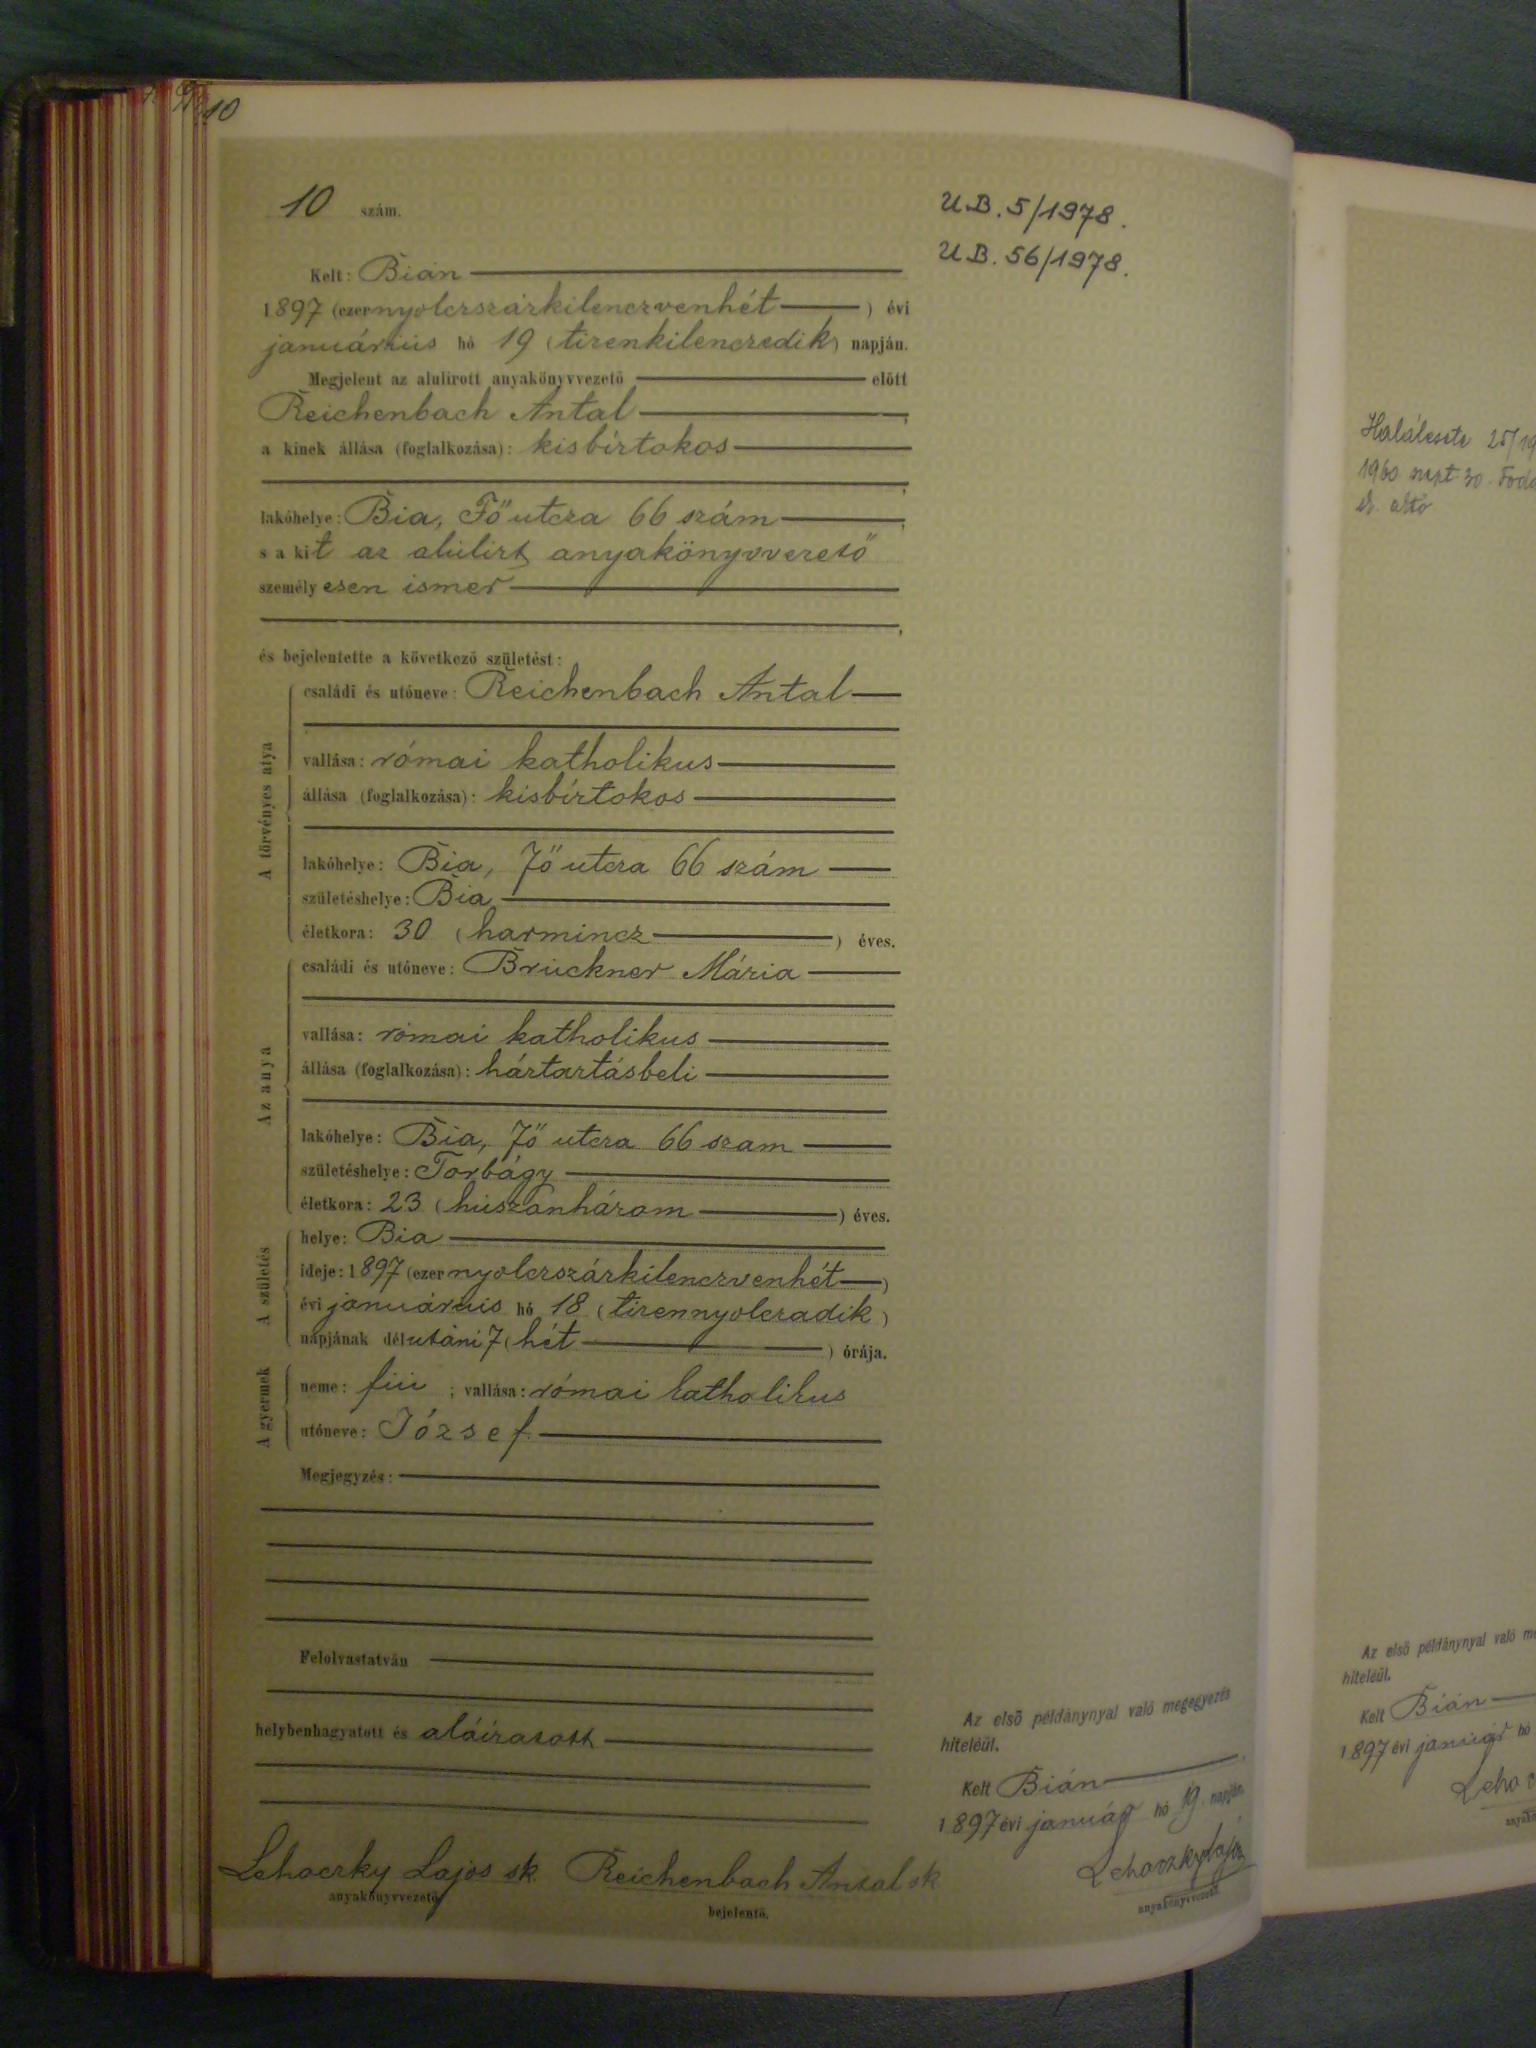 10
10 szám.
U.B. 5/1978.
U.B. 56/1978.
Kelt: Bián
1897 (ezernyolczszázkilenczvenhét) évi
januárius hó 19 (tizenkilenczedik) napján.
Megjelent az alulirott anyakönyvvezető előtt
Reichenbach Antal,
a kinek állása (foglalkozása): kisbirtokos
;
lakóhelye: Bia, Fő utcza 66 szám;
s a kit az alulirt anyakönyvvezető
személyesen ismer
,
és bejelentette a következő születést:
A törvényes atya
családi és utóneve: Reichenbach Antal
vallása: római katholikus
állása (foglalkozása): kisbirtokos
lakóhelye: Bia, Fő utcza 66 szám
születéshelye: Bia
életkora: 30 (harmincz) éves.
Az anya
családi és utóneve: Bruckner Mária
vallása: római katholikus
állása (foglalkozása): háztartásbeli
lakóhelye: Bia, Fő utcza 66 szam
születéshelye: Torbágy
életkora: 23 (huszonhárom) éves.
A születés
helye: Bia
ideje: 1897 (ezernyolczszázkilenczvenhét)
évi januárius hó 18 (tizennyolczadik)
napjának délutáni 7 (hét) órája.
A gyermek
neme: fiú; vallása: római katholikus
utóneve: József
Megjegyzés:
Felolvastatván
helybenhagyatott és aláiratott
Lehoczky Lajos sk
anyakönyvvezető
Reichenbach Antal sk
bejelentő.
Az első példánynyal való megegyezés
hiteléül.
Kelt Bián
1897 évi január hó 19. napján
Lehoczky Lajos
anyakönyvvezető
Haláleseti 25/19
1960 szept 30.
Az első példánynyal való
hiteléül.
Kelt Bián
1897 évi január hó